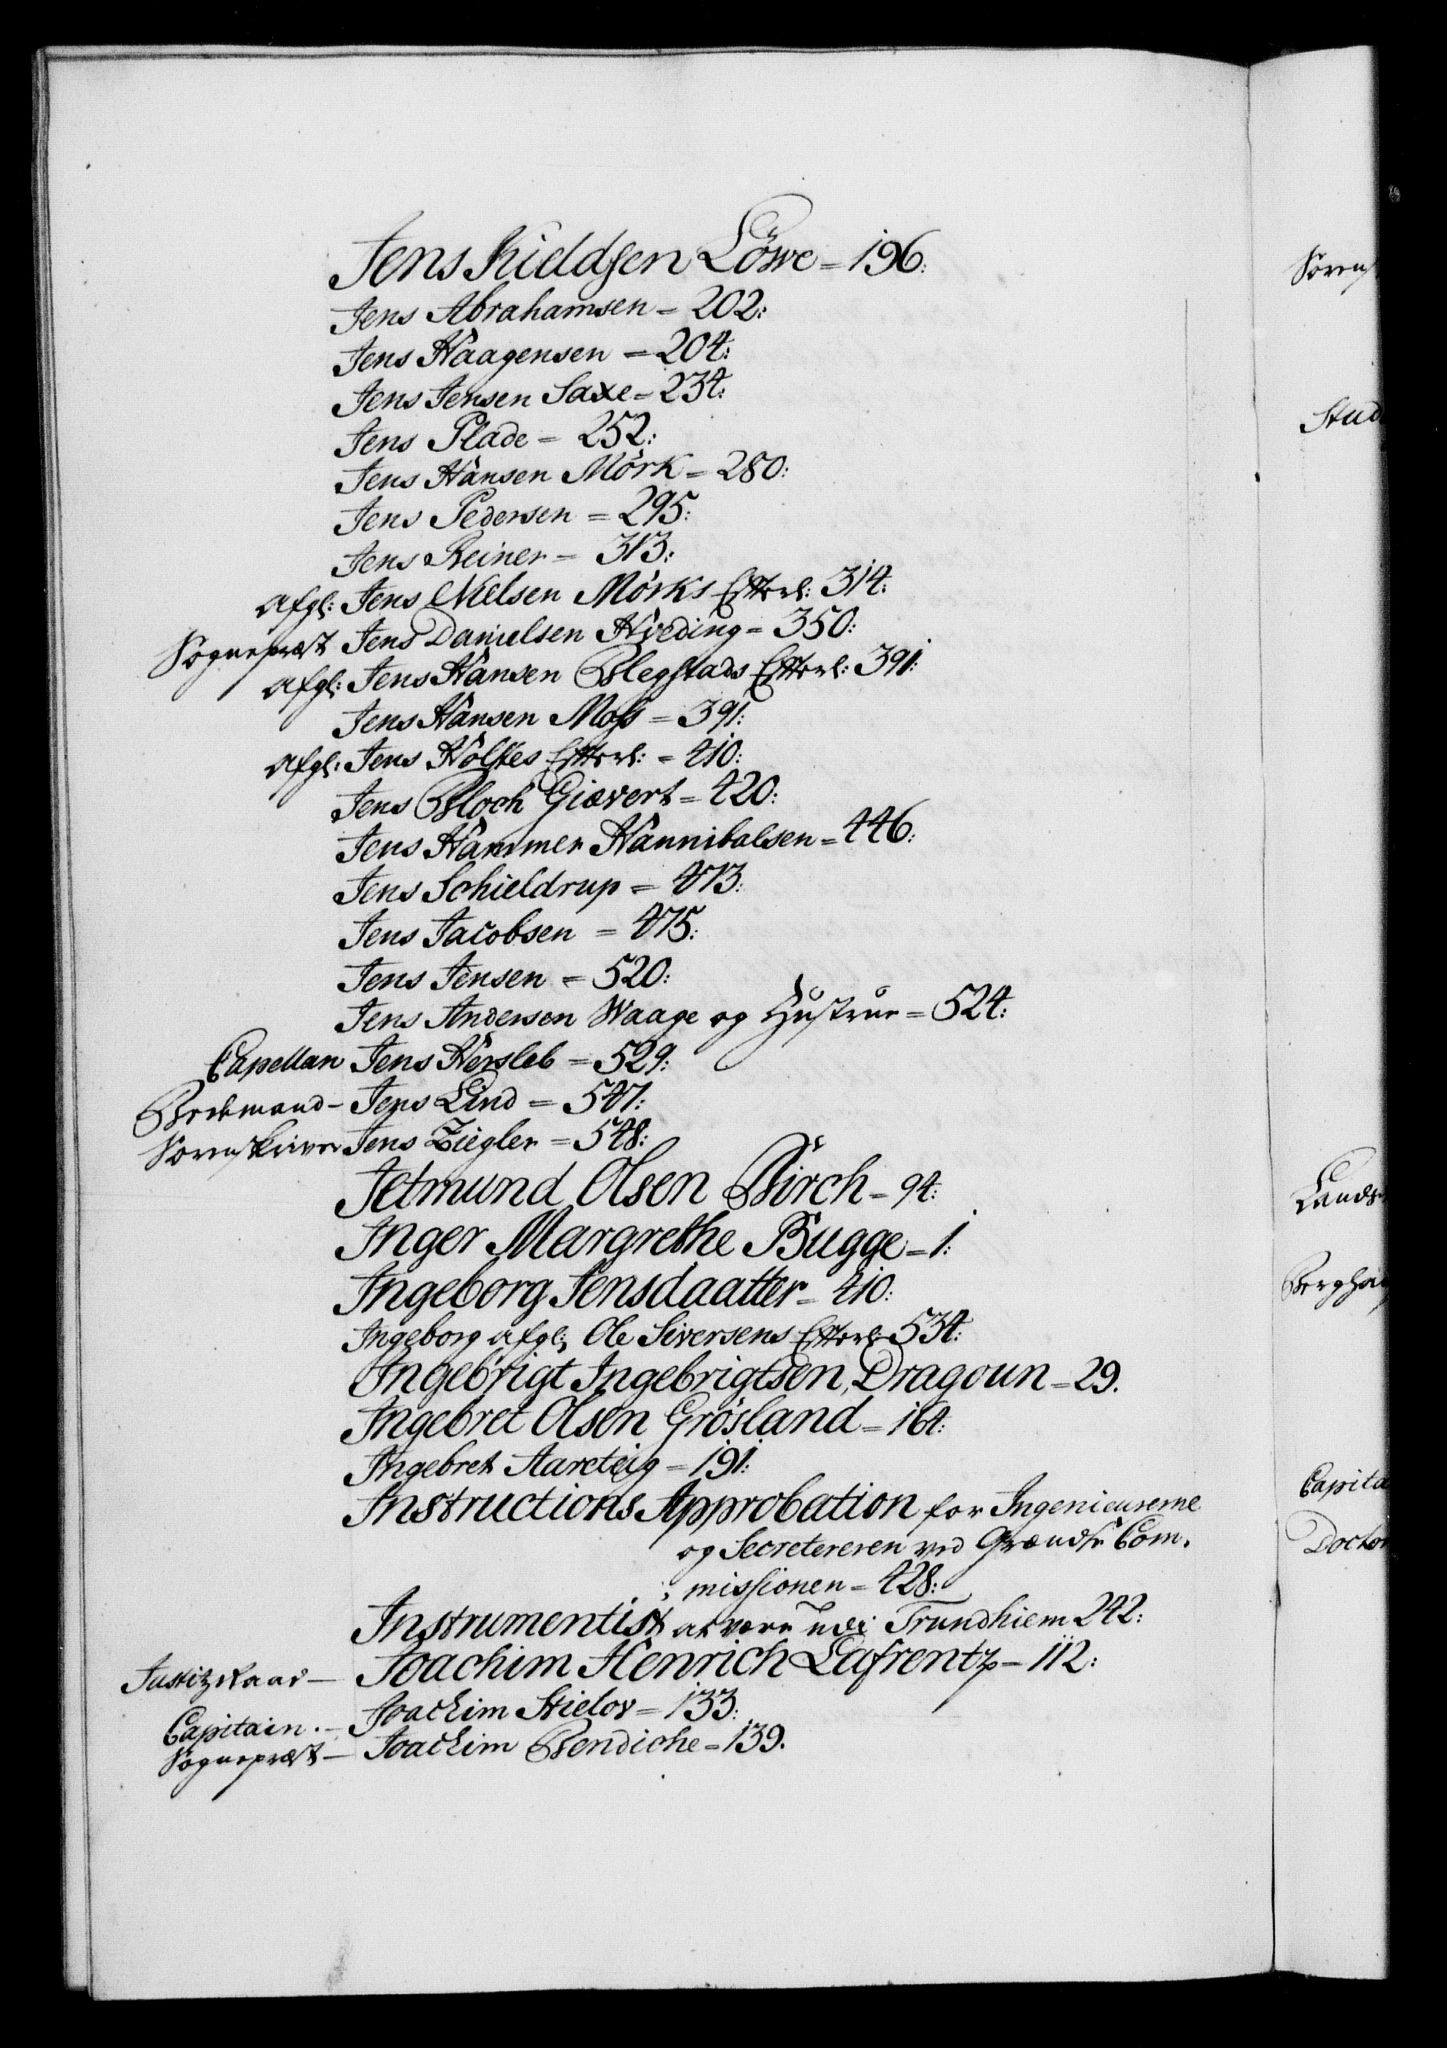 Jens Kieldsen Löwe = 196:
Jens Abrahamsen = 202:
Jens Haagensen = 204:
Jens Jensen Saxe = 234:
Jens Plade = 252:
Jens Hansen Mörk = 280:
Jens Pedersen = 295:
Jens Reiner = 313:
Afgl: Jens Nielsen Mörks Efterl: 314:
Sognepræst Jens Danielsen Hveding = 350:
Afgl: Jens Hansen Blegstads Efterl: 391:
Jens Hansen Moss = 391:
Afgl: Jens Holtes Efterl: = 410:
Jens Bloch Giævert = 420:
Jens Hammer Hannibalsen = 446:
Jens Schieldrup = 473:
Jens Jacobsen = 475:
Jens Jensen = 520:
Jens Andersen Waage og Hustrue = 524:
Capellan Jens Hersleb = 529:
Jens Lind = 547:
Sorenskriver Jens Ziegler = 548:
Jetmund Olsen Birch = 94:
Inger Margrethe Bugge = 1:
Ingeborg Jensdaatter = 410:
Ingeborg afgl: Ole Siversens Efterl: 534:
Ingebrigt Ingebrigtsen, Dragoun = 29.
Ingebret Olsen Grösland = 164:
Ingebret Aareteig = 191:
Instructions Approbation for Ingenieurerne
og Secretereren ved Grændse Com-
missionen = 428:
Instrumentist at være udi Trundhiem 242:
Justitzraad — Joachim Henrich Lafrentz = 112:
Capitain. — Joachim Stielov = 133:
Sognepræst — Joachim Bendiche = 139.
Sorens
Stud
Lands
Berghau
Capita
Doctor